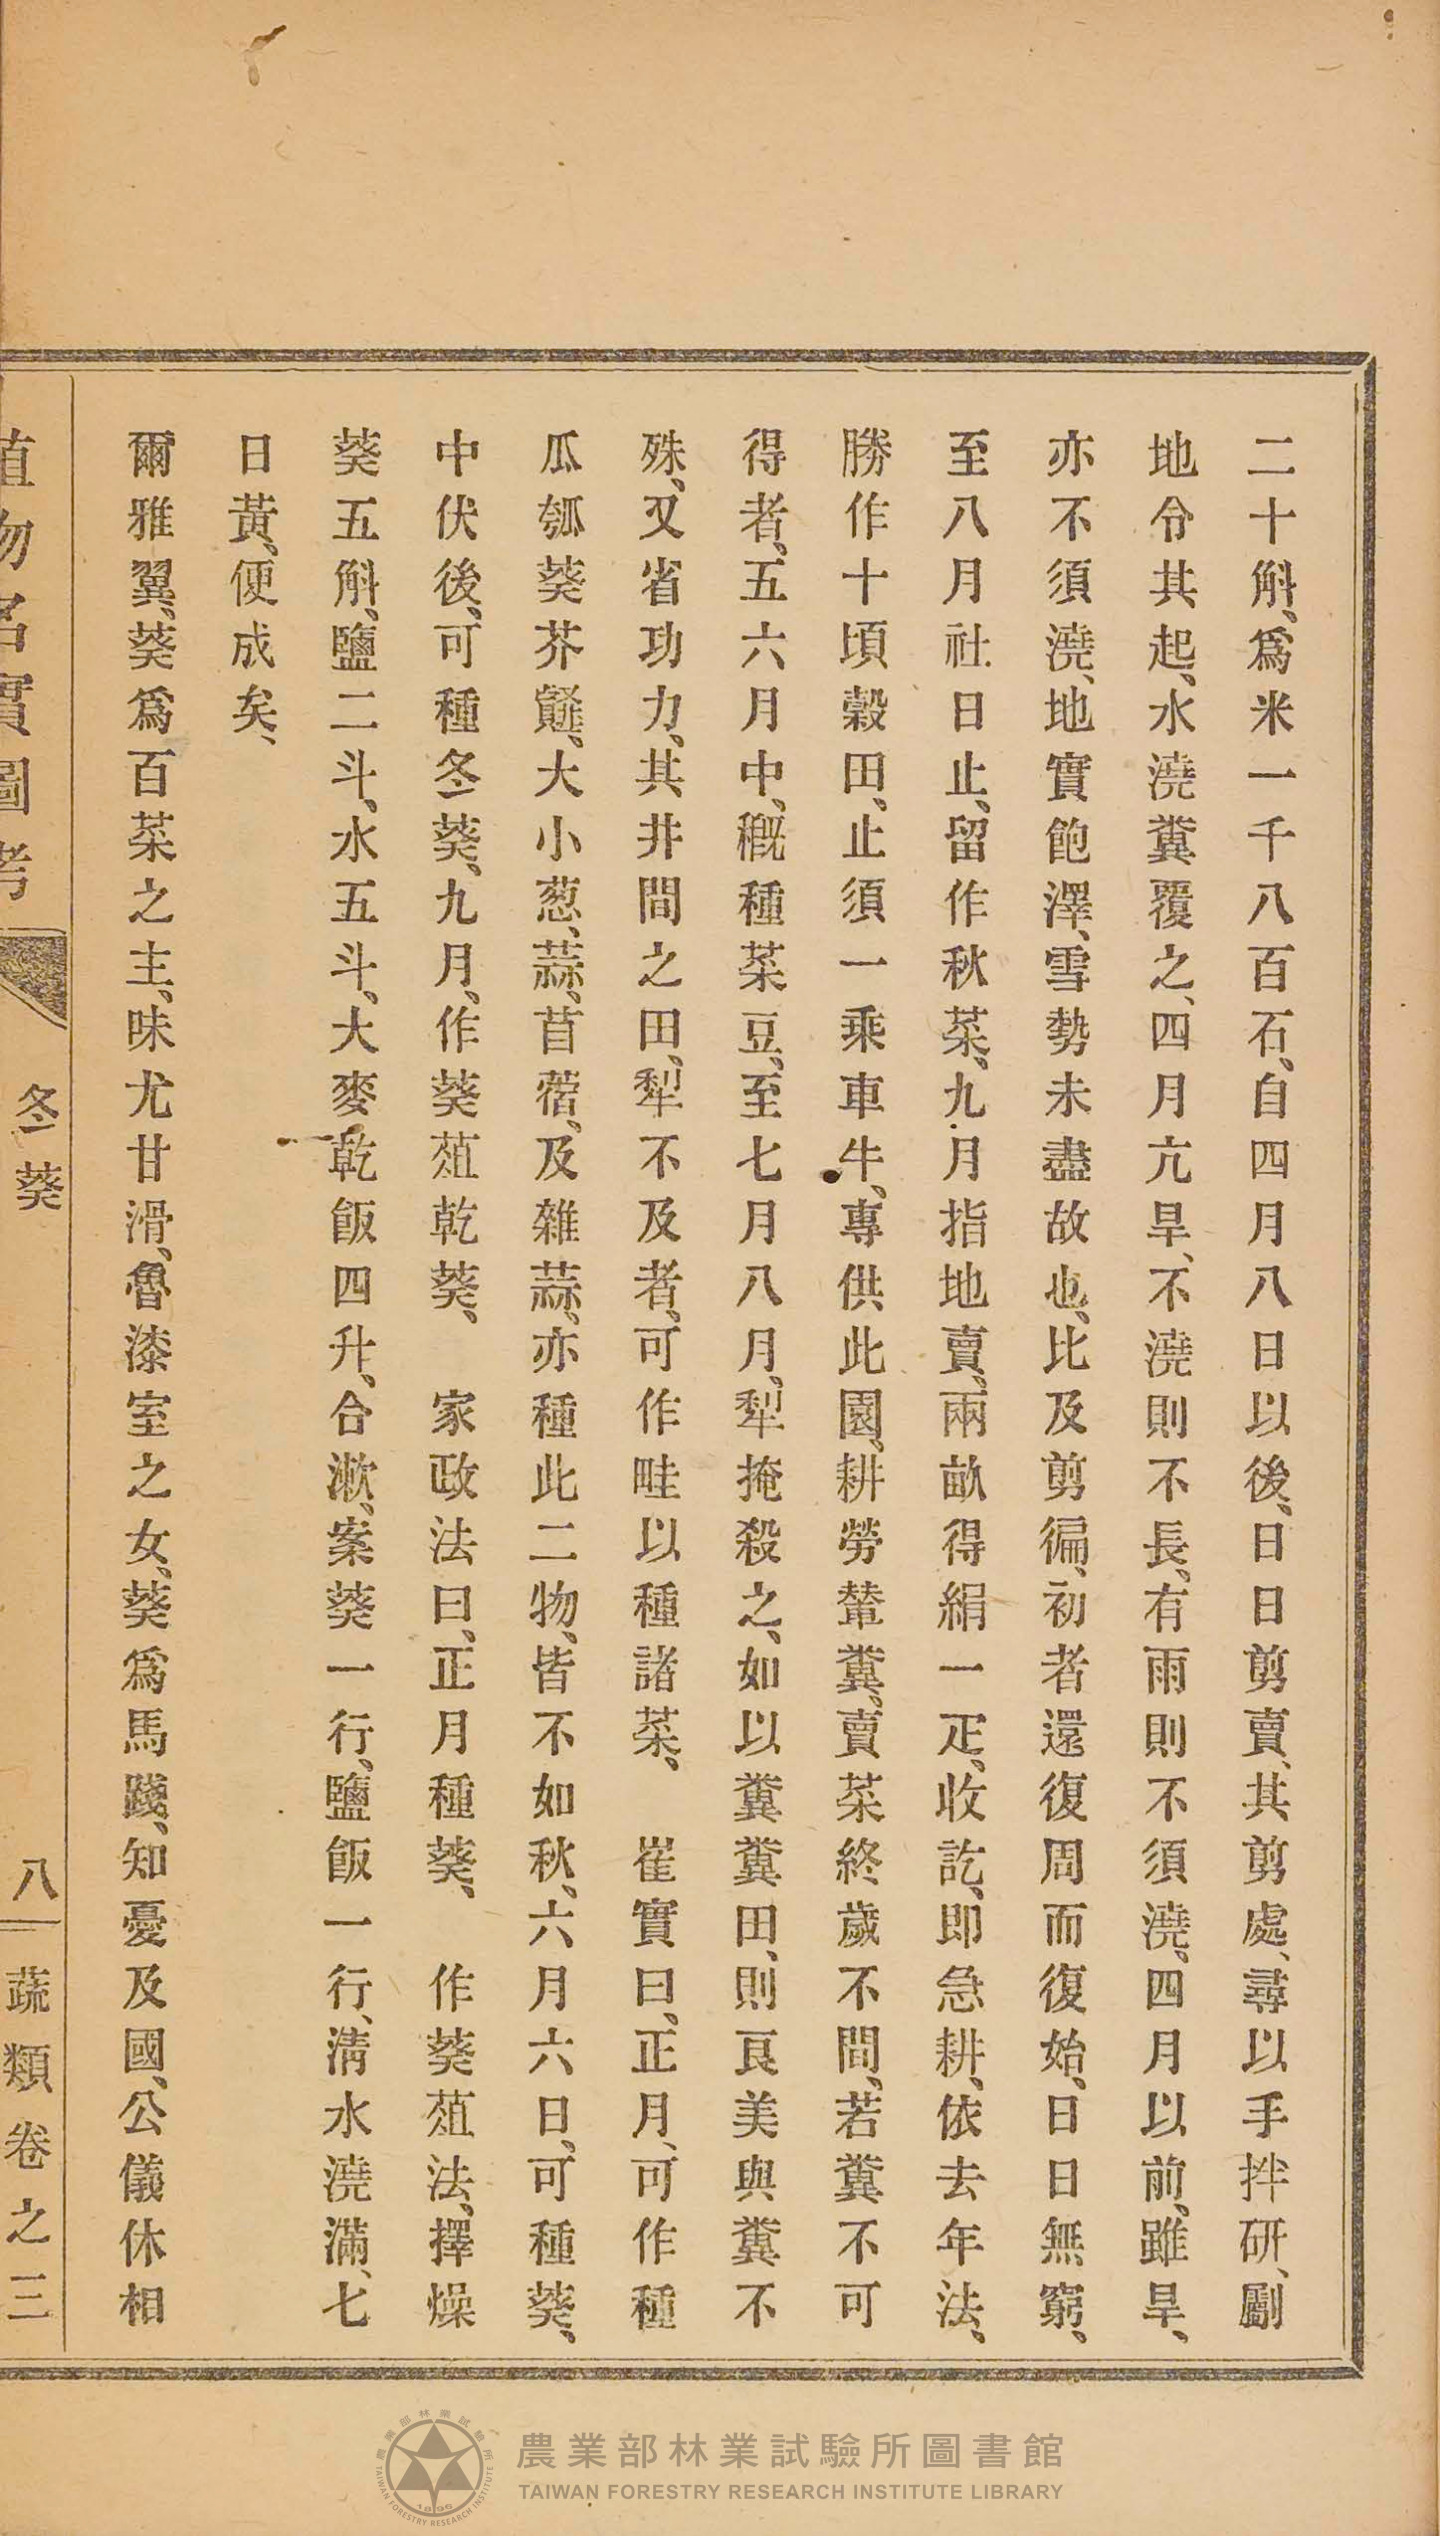 二十斛、爲米一千八百石、自四月八日以後、日日剪賣、其剪處、尋以手拌研、劚
地令其起、水澆糞覆之、四月亢旱、不澆則不長、有雨則不須澆、四月以前、雖旱、
亦不須澆、地實飽澤、雪勢未盡故也、比及剪徧、初者還復周而復始、日日無窮、
至八月社日止、留作秋菜、九月指地賣、兩畝得絹一疋、收訖、即急耕、依去年法、
勝作十頃穀田、止須一乘車牛、專供此園、耕勞輦糞、賣菜終歲不閒、若糞不可
得者、五六月中、穊種菜豆、至七月八月、犁掩殺之、如以糞糞田、則良美與糞不
殊、又省功力、其井間之田、犁不及者、可作畦以種諸菜、　崔實曰、正月、可作種
瓜瓠葵芥䪥、大小葱、蒜、苜蓿、及雜蒜、亦種此二物、皆不如秋、六月六日、可種葵、
中伏後、可種冬葵、九月、作葵菹乾葵、　家政法曰、正月種葵、　作葵菹法、擇燥
葵五斛、鹽二斗、水五斗、大麥乾飯四升、合漱、案葵一行、鹽飯一行、清水澆滿、七
日黃、便成矣、
爾雅翼、葵爲百菜之主、味尤甘滑、魯漆室之女、葵爲馬踐、知憂及國、公儀休相
植物名實圖考　冬葵　八　蔬類卷之三
農業部林業試驗所圖書館
TAIWAN FORESTRY RESEARCH INSTITUTE LIBRARY
農業部林業試驗所
TAIWAN FORESTRY RESEARCH INSTITUTE
1896